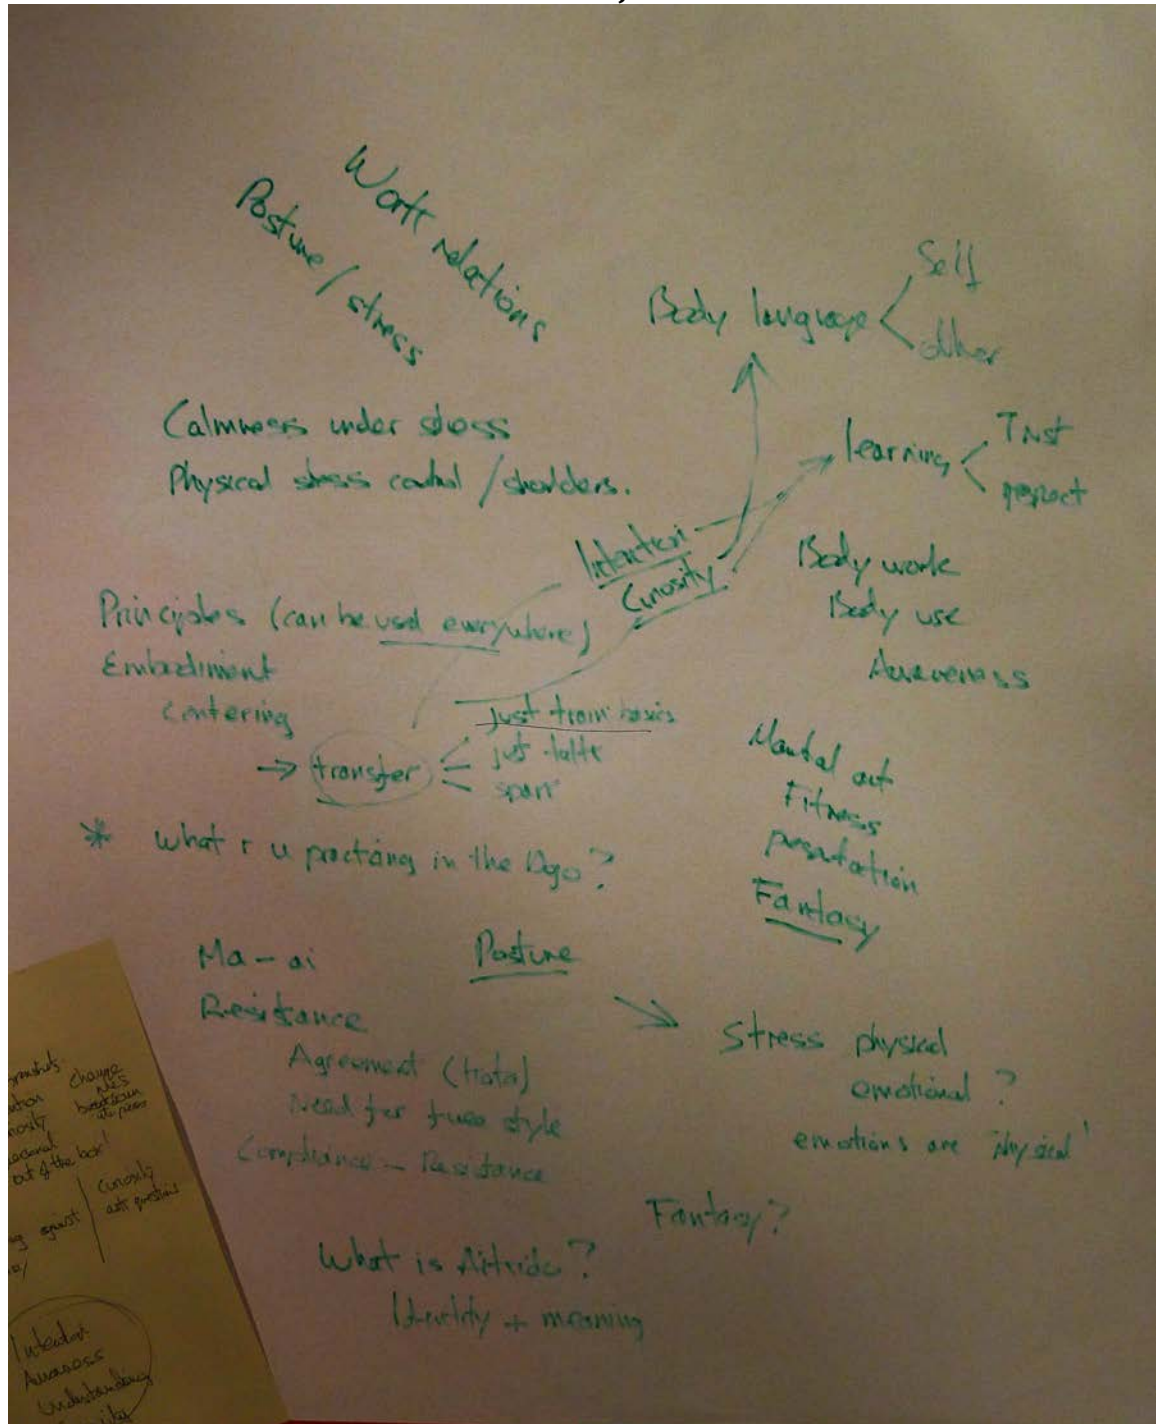 Work relations
Posture / stress
Body language
Self
other
Calmness under stress
Physical stress control / shoulders.
learning
Trust
respect
Intention
Curiosity
Body work
Body use
Awareness
Principles (can be used everywhere)
Embodiment
Centering
→ transfer
just train basics
just talk
spar
Martial art
Fitness
Fantasy
* What r u practing in the Dojo?
Ma-ai
Posture
Resistance
Agreement (Kata)
Need for free style
Compliance - Resistance
Stress physical
emotional ?
emotions are 'physical'
Fantasy?
What is Aikido?
Identity + meaning
change
out of the box
curiosity
ask questions
against
Intention
Awareness
Understanding